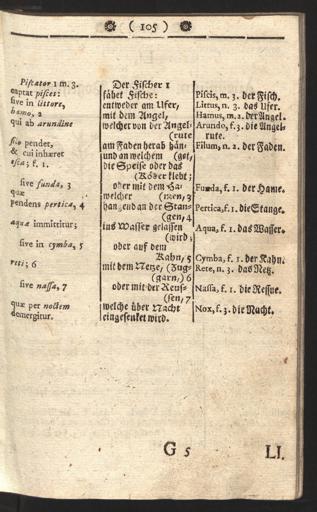 ( 105 )
Piscator 1 m. 3.
captat pisces:
sive in littore,
hamo, 2
qui ab arundine
filo pendet,
& cui inhæret
esca; f. 1.
sive funda, 3
quæ
pendens pertica, 4
aquæ immittitur;
sive in cymba, 5
reti; 6
sive nassa, 7
quæ per noctem
demergitur.
Der Fischer 1
fähet Fische:
entweder am Ufer,
mit dem Angel,
welcher von der Angel-
(rute
am Faden herab hän-
und an welchem (get,
die Speise oder das
(Köder klebt;
oder mit dem Ha-
welcher (men, 3
hangend an der Stan-
(gen, 4
ins Wasser gelassen
(wird;
oder auf dem
Kahn, 5
mit dem Netze, (Zug-
(garn,) 6
oder mit der Reus-
(sen, 7
welche über Nacht
eingesenket wird.
Piscis, m. 3. der Fisch.
Littus, n. 3. das Ufer.
Hamus, m. 2. der Angel.
Arundo, f. 3. die Angel-
rute.
Filum, n. 2. der Faden.
Funda, f. 1. der Hame.
Pertica, f. 1. die Stange.
Aqua, f. 1. das Wasser.
Cymba, f. 1. der Kahn.
Rete, n. 3. das Netz.
Nassa, f. 1. die Reusse.
Nox, f. 3. die Nacht.
G 5
LI.